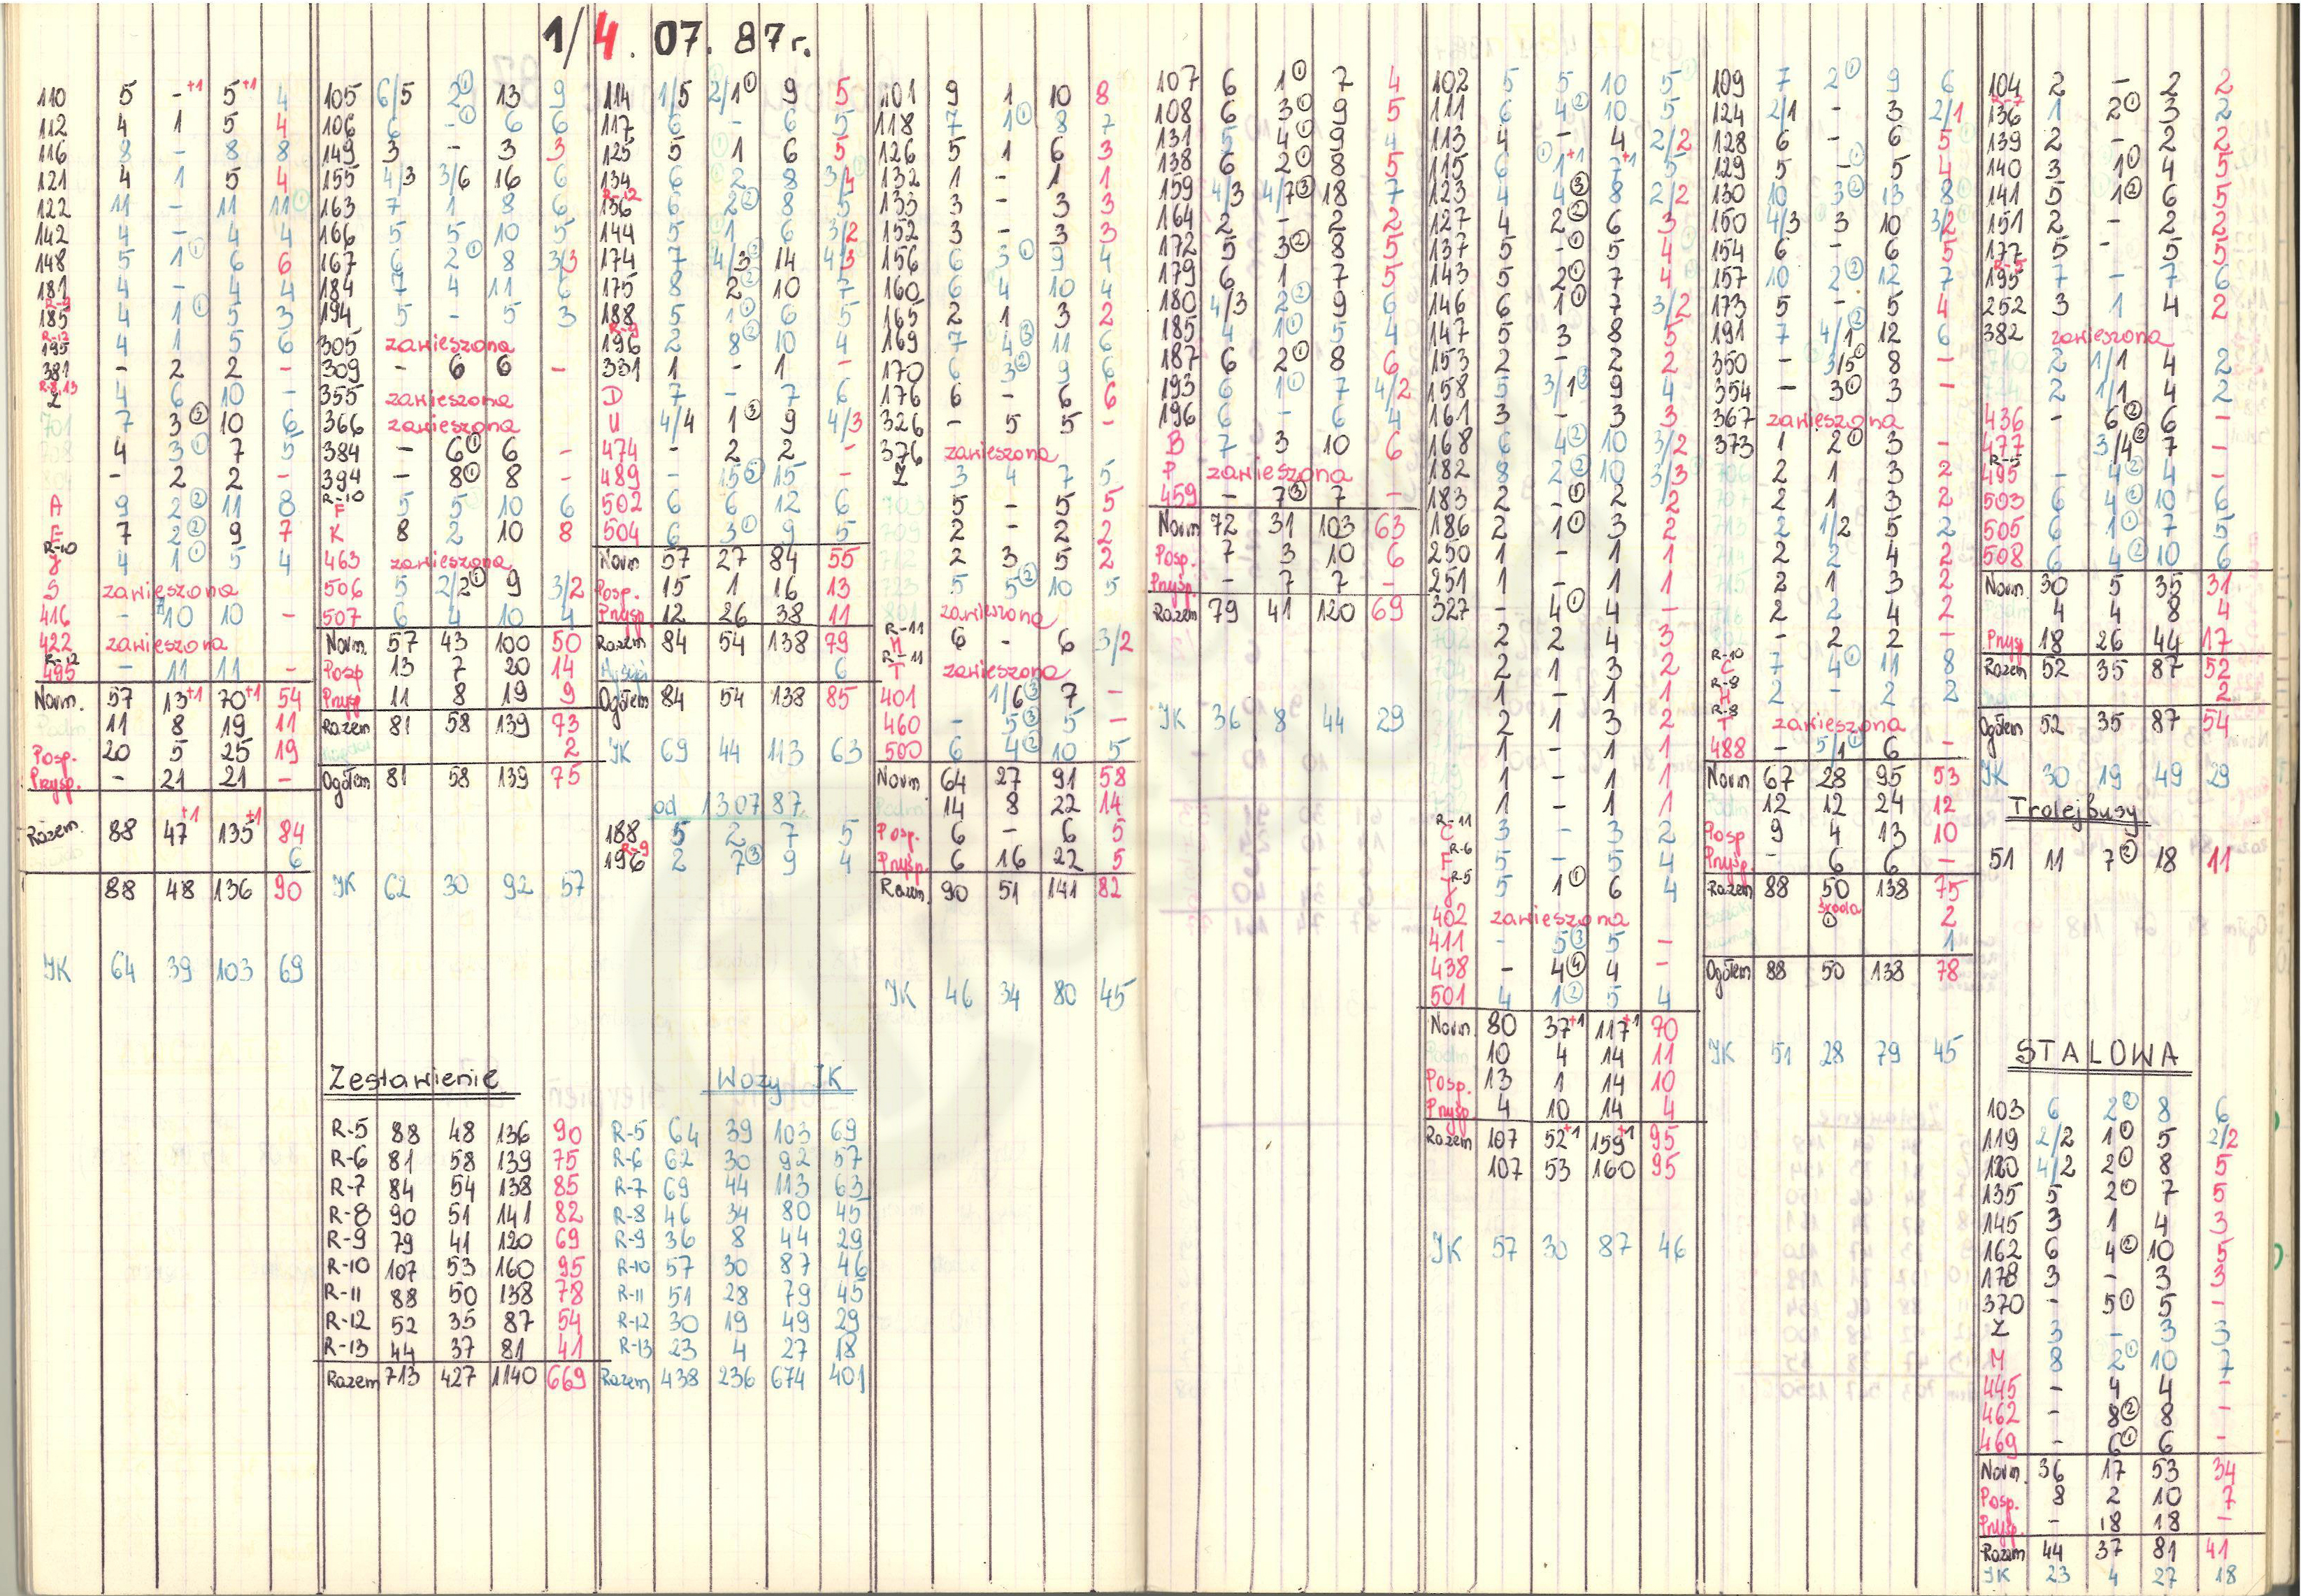 1/4. 07. 87 r.
110 5 -+1 5+1 4
112 4 1 5 4
116 8 - 8 8
121 4 1 5 4
122 11 - 11 11
142 4 - 4 4
148 5 1① 6 6
181 4 - 4 4
R-9
185 4 1① 5 3
R-12
195 4 1 5 6
381 - 2 2 -
R-8,13
Z 4 6 10 -
701 7 3③ 10 6
4 3① 7 5
- 2 2 -
A 9 2② 11 8
E 7 2② 9 7
R-10
J 4 1① 5 4
S zawieszona
416 - 10 10 -
422 zawieszona
R-12
495 - 11 11 -
Norm. 57 13+1 70+1 54
11 8 19 11
Posp. 20 5 25 19
Przysp. - 21 21 -
Razem 88 47+1 135+1 84
6
88 48 136 90
JK 64 39 103 69
105 6/5 2① 13 9
106 6 -① 6 6
149 3 - 3 3
155 4/3 3/6 16 6
163 7 1 8 6
166 5 5 10 5
167 6 2① 8 3/3
184 7 4 11 6
194 5 - 5 3
305 zawieszona
309 - 6 6 -
355 zawieszona
366 zawieszona
384 - 6① 6 -
394 - 8① 8 -
R-10
F 5 5 10 6
K 8 2 10 8
463 zawieszona
506 5 2/2① 9 3/2
507 6 4 10 4
Norm. 57 43 100 50
Posp 13 7 20 14
Przysp 11 8 19 9
Razem 81 58 139 73
2
Ogółem 81 58 139 75
JK 62 30 92 57
Zestawienie
R-5 88 48 136 90
R-6 81 58 139 75
R-7 84 54 138 85
R-8 90 51 141 82
R-9 79 41 120 69
R-10 107 53 160 95
R-11 88 50 138 78
R-12 52 35 87 54
R-13 44 37 81 41
Razem 713 427 1140 669
114 1/5 2/1① 9 5
117 6 - 6 5
125 5 1 6 5
134 6 2 8 3/4
R-12
136 6 2② 8 5
144 5 1 6 3/2
174 7 4/3② 14 4/3
175 8 2② 10 7
188 5 1① 6 5
R-9
196 2 8② 10 4
331 1 - 1 -
D 7 - 7 6
U 4/4 1③ 9 4/3
474 - 2 2 -
489 - 15⑤ 15 -
502 6 6 12 6
504 6 3① 9 5
Norm 57 27 84 55
Posp. 15 1 16 13
Przysp 12 26 38 11
Razem 84 54 138 79
6
Ogółem 84 54 138 85
JK 69 44 113 63
od 13.07.87.
188 5 2 7 5
R-9
196 2 7③ 9 4
Wozy JK
R-5 64 39 103 69
R-6 62 30 92 57
R-7 69 44 113 63
R-8 46 34 80 45
R-9 36 8 44 29
R-10 57 30 87 46
R-11 51 28 79 45
R-12 30 19 49 29
R-13 23 4 27 18
Razem 438 236 674 401
101 9 1 10 8
118 7 1① 8 7
126 5 1 6 3
132 1 - 1 1
133 3 - 3 3
152 3 - 3 3
156 6 3① 9 4
160 6 4 10 4
165 2 1 3 2
169 7 4② 11 6
170 6 3② 9 6
176 6 - 6 6
326 - 5 5 -
376 zawieszona
Z 3 4 7 5
703 5 - 5 5
709 2 - 2 2
712 2 3 5 2
723 5 5② 10 5
801 zawieszona
R-11
H 6 - 6 3/2
R-11
T zawieszona
401 1/6③ 7 -
460 - 5③ 5 -
500 6 4② 10 5
Norm 64 27 91 58
14 8 22 14
Posp. 6 - 6 5
Przysp. 6 16 22 5
Razem. 90 51 141 82
JK 46 34 80 45
107 6 1① 7 4
108 6 3① 9 5
131 5 4① 9 4
138 6 2① 8 5
159 4/3 4/7③ 18 7
164 2 - 2 2
172 5 3② 8 5
179 6 1 7 5
180 4/3 2② 9 6
185 4 1① 5 4
187 6 2① 8 6
193 6 1① 7 4/2
196 6 - 6 4
B 7 3 10 6
P zawieszona
459 - 7③ 7 -
Norm 72 31 103 63
Posp. 7 3 10 6
Przysp. - 7 7 -
Razem 79 41 120 69
JK 36 8 44 29
102 5 5 10 5
111 6 4② 10 5
113 4 - 4 2/2
115 6 ①1+1 7+1 5
123 4 4③ 8 2/2
127 4 2② 6 3
137 5 -① 5 4
143 5 2① 7 4
146 6 1① 7 3/2
147 5 3 8 5
153 2 - 2 2
158 5 3/1③ 9 4
161 3 - 3 3
168 6 4② 10 3/2
182 8 2② 10 3/3
183 2 -① 2 2
186 2 1① 3 2
250 1 - 1 1
251 1 - 1 1
327 - 4① 4 -
702 2 2 4 3
2 1 3 2
1 - 1 1
2 1 3 2
1 - 1 1
1 - 1 1
1 - 1 1
R-11
C 3 - 3 2
R-6
F 5 - 5 4
R-5
J 5 1① 6 4
402 zawieszona
411 - 5③ 5 -
438 - 4④ 4 -
501 4 1② 5 4
Norm. 80 37+1 117+1 70
10 4 14 11
Posp. 13 1 14 10
Przysp 4 10 14 4
Razem 107 52+1 159+1 95
107 53 160 95
JK 57 30 87 46
109 7 2① 9 6
124 2/1 - 3 2/1
128 6 - 6 5
129 5 -① 5 4
130 10 3② 13 8
150 4/3 3 10 3/2
154 6 - 6 5
157 10 2② 12 7
173 5 - 5 4
191 7 4/1② 12 6
350 - 3/5① 8 -
354 - 3① 3 -
367 zawieszona
373 1 2① 3 -
706 2 1 3 2
707 2 1 3 2
713 2 1/2 5 2
714 2 2 4 2
715 2 1 3 2
716 2 2 4 2
- 2 2 -
R-10
C 7 4① 11 8
R-8
H 2 - 2 2
R-8
T zawieszona
488 - 5/1① 6 -
Norm 67 28 95 53
12 12 24 12
Posp 9 4 13 10
Przysp. - 6 6 -
Razem 88 50 138 75
środa
① 2
1
Ogółem 88 50 138 78
JK 51 28 79 45
104 2 - 2 2
R-7
136 1 2① 3 2
139 2 - 2 2
140 3 1① 4 5
141 5 1② 6 5
151 2 - 2 2
177 5 - 5 5
R-5
195 7 - 7 6
252 3 1 4 2
382 zawieszona
710 2 1/1 4 2
2 1/1 4 2
436 - 6② 6 -
477 3/4② 7 -
R-5
495 - 4② 4 -
503 6 4② 10 6
505 6 1① 7 5
508 6 4② 10 6
Norm. 30 5 35 31
4 4 8 4
Przysp 18 26 44 17
Razem 52 35 87 52
2
Ogółem 52 35 87 54
JK 30 19 49 29
Trolejbusy
51 11 7② 18 11
STALOWA
103 6 2② 8 6
119 2/2 1① 5 2/2
120 4/2 2① 8 5
135 5 2① 7 5
145 3 1 4 3
162 6 4② 10 5
178 3 - 3 3
370 - 5① 5 -
Z 3 - 3 3
M 8 2① 10 7
445 - 4 4 -
462 - 8② 8 -
469 - 6① 6 -
Norm. 36 17 53 34
Posp. 8 2 10 7
Przysp. - 18 18 -
Razem 44 37 81 41
JK 23 4 27 18